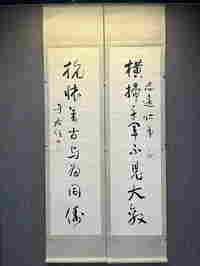 橫掃千軍不見大敵
志遠仁弟
抗懷萬古與為同儔
于右任